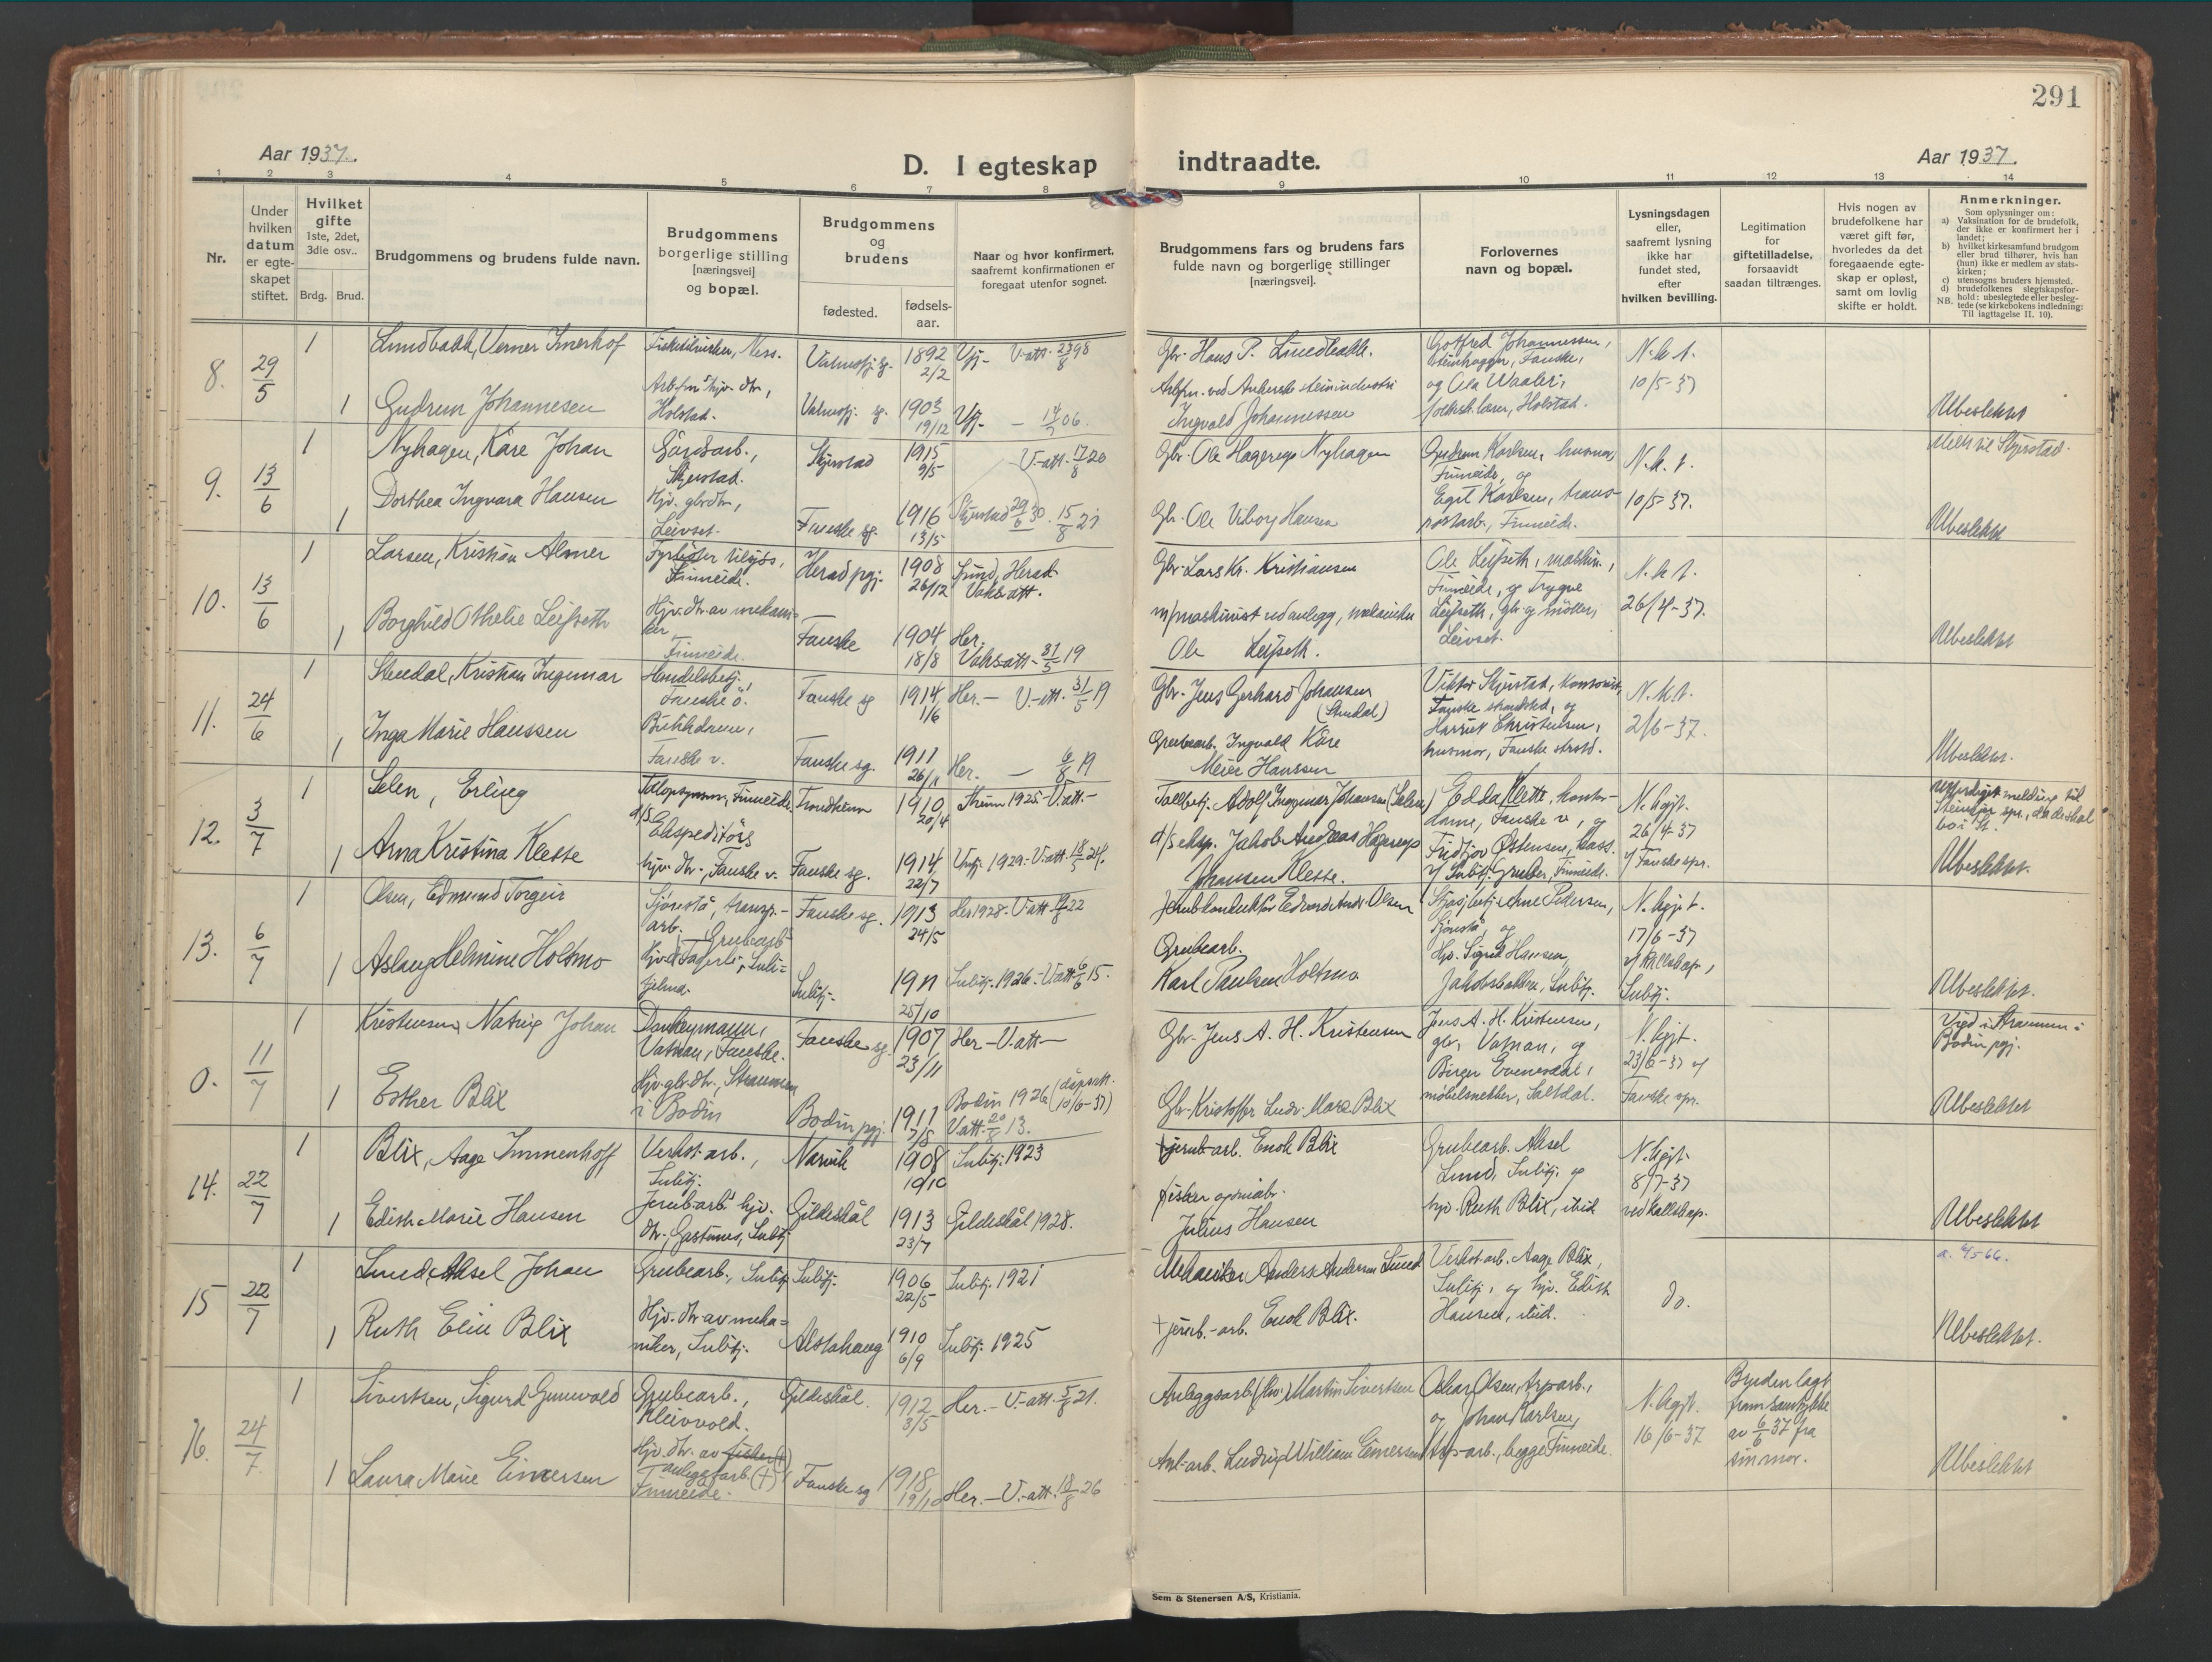 291
Aar 1937.
D. I egteskap indtraadte.
Aar 1937.
1 2 3 4 5 6 7 8 9 10 11 12 13 14
Nr.
Under hvilken datum er egteskapet stiftet.
Hvilket gifte
1ste, 2det, 3die osv..
Brdg. Brud.
Brudgommens og brudens fulde navn.
Brudgommens borgerlige stilling [næringsvei] og bopæl.
Brudgommens og brudens
fødested.
fødsels-aar.
Naar og hvor konfirmert, saafremt konfirmationen er foregaat utenfor sognet.
Brudgommens fars og brudens fars fulde navn og borgerlige stillinger [næringsvei].
Forlovernes navn og bopæl.
Lysningsdagen eller, saafremt lysning ikke har fundet sted, efter hvilken bevilling.
Legitimation for giftetilladelse, forsaavidt saadan tiltrænges.
Hvis nogen av brudefolkene har været gift før, hvorledes da det foregaaende egteskap er opløst, samt om lovlig skifte er holdt.
Anmerkninger.
Som oplysninger om:
a) Vaksination for de brudefolk, der ikke er konfirmert her i landet;
b) hvilket kirkesamfund brudgom eller brud tilhører, hvis han (hun) ikke er medlem av statskirken;
c) utensogns bruders hjemsted.
d) brudefolkenes slegtskapsforhold: ubeslegtede eller beslegtede (se kirkebokens indledning:
NB. Til iagttagelse II. 10).
8. 29/5
1 Lundbakk, Verner Imerhof
Valnesfj. sg. 1892 2/2 Vfj- V-att. 23/8 98
Gbr. Hans P. Lundbakk.
Gotfred Johannessen, steinhugger, Fauske, og Ola Waaler, Holstad.
N.k.t. 10/5-37
1 Gudrun Johannesen
hjv. dtr, Holstad.
Valnesfj. sg. 1903 19/12 Vfj- — 06.
Arbfm. ved Ankerske steinindustri
Ingvald Johannessen
Ubeslektet
9. 13/6
1 Nyhagen, Kåre Johan
Gårdsarb., Skjerstad.
Skjerstad 1915 9/5 V.-att. 17/8 20
Gbr. Ole Hagerup Nyhagen
Gudrun Karlsen, husmor, Finneide, og Egil Karlsen, transportarb., Finneide.
N.k.t. 10/5-37.
Meldt til Skjerstad.
1 Dorthea Ingvara Hansen
Hjv. gbrdtr, Leivset.
Fauske sg. 1916 13/5 Skjerstad 29/6 30. 15/8 21
Gbr. Ole Viborg Hansen
Ubeslektet
10. 13/6
1 Larsen, Kristian Almer
Finneide.
Herad pgj. 1908 26/12 Herad. Vaksatt.
Gbr. Lars Kr. Kristiansen
Ole Leifseth, maskin., Finneide, og Trygve Leifseth, gbr. og møller, Leivset.
N.k.t. 26/4-37.
1 Borghild Othelie Leifseth
Hjv. dtr. av mekaniker, Finneide.
Fauske 1904 18/8 Her. Vaksatt- 31/5 19
m/maskinist ved anlegg, mekaniker
Ole Leifseth.
Ubeslektet
11. 24/6
1 Stendal, Kristian Ingemar
Handelsbetj., Fauske ö.
Fauske sg 1914 1/6 Her.- V.-att. 31/5 19
Gbr. Jens Gerhard Johansen (Stendal)
Viktor Skjerstad, kontorist, Fauske strandsted, og Harriet Christensen, husmor, Fauske strstd.
N.k.t. 2/6-37.
1 Inga Marie Hanssen
Butikkdame, Fauske v.
Fauske sg. 1911 26/11 Her. — 6/8 19
Grubearb. Ingvald Kåre Meier Hanssen
Ubeslektet.
12. 3/7
1 Selen, Erling
Tollopsynsm., Finneide.
Trondheim 1910 20/4 Thjem 1925 - V.att.-
Tollbetj. Adolf Ingemar Johansen (Selen)
Edda Klette, kontordame, Fauske v, og Fridtjov Østensen, kass. v/ Sulitj. Gruber, Finneide.
N.kgjt. 26/4-37 v/ Fauske spr.
1 Arna Kristina Klette
d/s Ekspeditörs hjv. dtr., Fauske v.
Fauske sg. 1914 22/7 1929. V.att. 18/5 24.
d/s eksp. Jakob Andreas Hagerup Johansen Klette.
Ubeslektet.
13. 6/7
1 Olsen, Edmund Torgeir
Sjönstå, transp.-arb.
Fauske sg. 1913 24/5 Her 1928. V-att. 22
Edvard Andr. Olsen
Arne Pedersen, Sjönstå, og Hjv. Sigrid Hansen, Jakobsbakken, Sulitj.
N.kgjt. 17/6-37 v/ kallskap., Sulitj.
1 Aslaug Helmine Holtmo
Grubearb.
Sulitj. 1911 25/10 Sulitj. 1926. V.att 6/6 15.
Grubearb. Karl Paulsen Holtmo
Ubeslektet.
0. 11/7
1 Kristensen, Natvig Johan
Donkeymann, Vatnan, Fauske.
Fauske sg. 1907 23/11 Her - V.att-
Gbr. Jens A. H. Kristensen
Jens A. H. Kristensen, gbr, Vatnan, og Birger Evensdal, möbelsnekker, Saltdal.
N.kgjt. 23/6-37 v/ Fauske spr.
Vigd i Straumen i Bodin pgj.
1 Esther Blix
Hjv. gbr. dtr., Straumen i Bodin
Bodin pgj. 1911 7/8 Bodin 1926 (dåpsatt. 10/6-37) V.att. 20/8 13.
Gbr. Kristoffer Ludv. Marc Blix
Ubeslektet
14. 22/7
1 Blix, Aage Immenhoff
Verkst. arb., Sulitj.
Narvik 1908 19/10 Sulitj. 1923
† jernb-arb. Enok Blix
Grubearb. Aksel Lund, Sulitj. og hjv. Ruth Blix, ibid
N.kgjt. 8/7-37 ved kallskap.
1 Edith Marie Hansen
Jernb-arb. hjv. dtr., Sulitj.
Gildeskål 1913 23/7 Gildeskål 1928.
fisker og småbr. Julius Hansen
Ubeslektet
15 22/7
1 Lund, Aksel Johan
Grubearb., Sulitj
Sulitj. 1906 22/5 Sulitj. 1921
Mekaniker Anders Andersen Lund
Verkst. arb. Aage Blix, Sulitj., og hjv. Edith Hansen, ibid.
do.
1 Ruth Elise Blix
Hjv. dtr. av mekaniker, Sulitj.
Alstahaug 1910 6/9 Sulitj. 1925
† jernb.-arb. Enok Blix.
Ubeslektet.
16. 24/7
1 Sivertsen, Sigurd Gunvald
Grubearb., Kleivvold.
Gildeskål. 1912 3/5 Her.- V.-att. 5/8 21.
Anleggsarb. Martin Sivertsen
Oskar Olsen, trp.arb., og Johan Karlsen, trp-arb., begge Finneide.
N.kgjt. 16/6-37
Bruden lagt fram samtykke av 6/6 37 fra sin mor.
1 Laura Marie Einersen
Hjv. dtr. av fisker (†) anleggsarb. (†), Finneide.
Fauske sg 1918 19/10 Her.- V.-att. 18/8 26
Anl-arb. Ludvig William Einersen
Ubeslektet
Sem & Stenersen A/S, Kristiania.